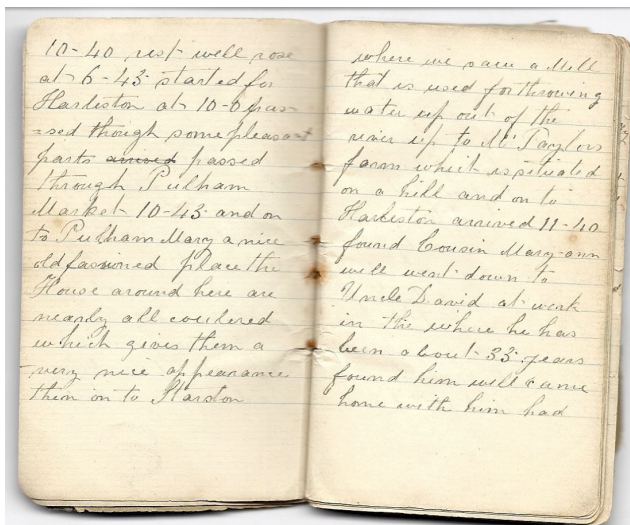 10-40 rest well rose
at 6-43 started for
Harleston at 10-0 pas-
=sed though some pleasant
parts arrived passed
through Pulham
Market 10-43 and on
to Pulham Mary a nice
old fasioned place the
House around here are
nearly all couldered
which gives them a
very nice appearance
then on to Starston
where we saw a Mill
that is used for throwing
water up out of the
river up to Mr Taylors
farm which is situated
on a hill and on to
Harleston arrived 11-40
found Cousin Mary-ann
well went down to
Uncle David at work
in the where he has
been about 33 years
found him well came
home with him had